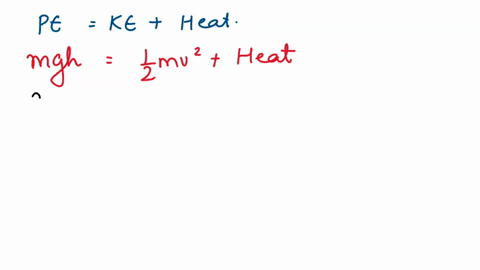 PE = KE + Heat.
mgh = 1/2 mv² + Heat